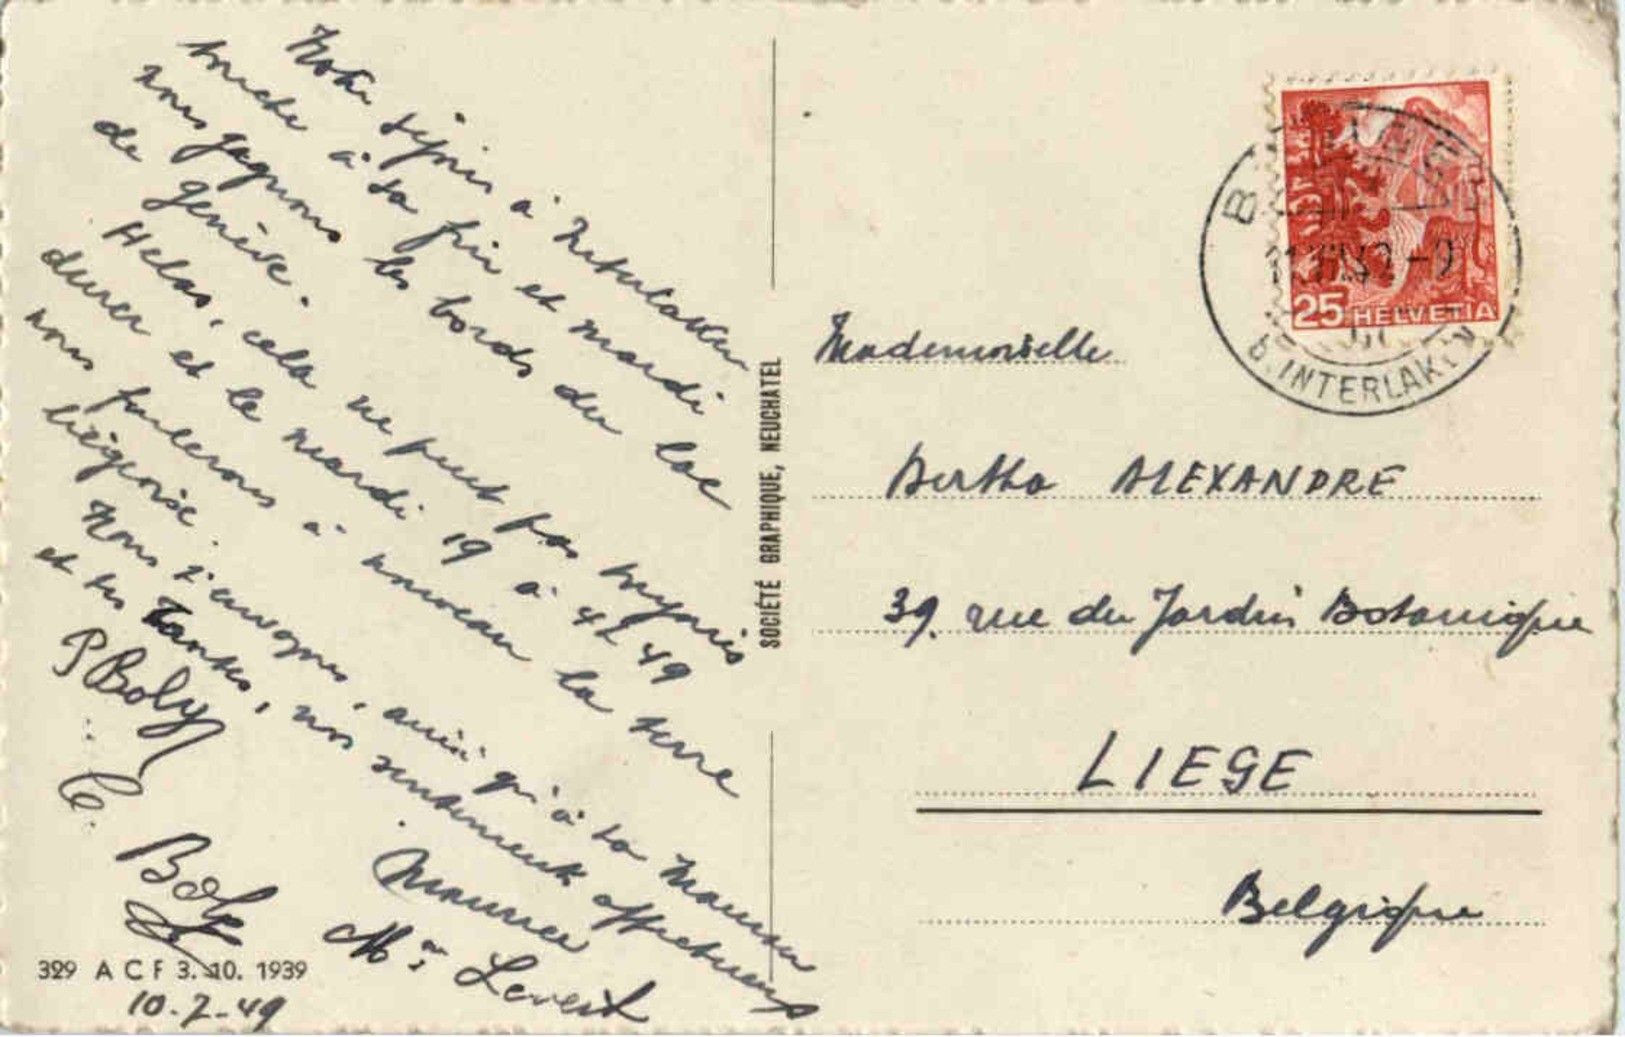 Notre séjour à Interlaken
touche à sa fin et mardi
nous gagnons les bords du lac
de genève.
Helas, cela ne peut pas toujours
durer et le mardi 19 à 4h 49
nous foulerons à nouveau la terre
liégeoise.
Nous t'envoyons, ainsi qu'à ta Maman
et tes Tantes, nos sentiments affectueux
P Boly
C. Boly
Maurice
Levert
329 A C F 3. 10. 1939
10-7-49
SOCIÉTÉ GRAPHIQUE, NEUCHATEL
25 HELVETIA
b. INTERLAKEN
Mademoiselle
Bertha ALEXANDRE
39, rue du Jardin Botanique
LIEGE
Belgique